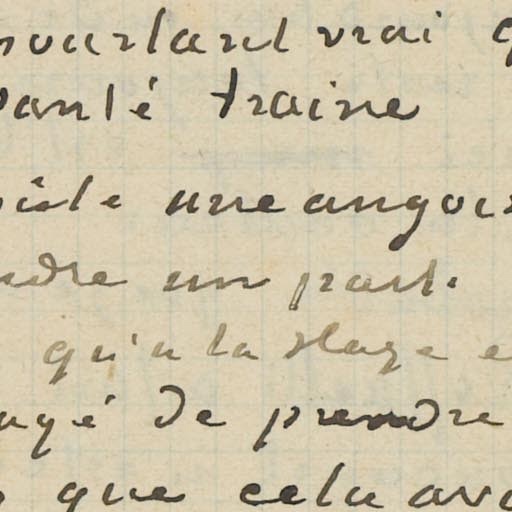 pourtant vrai q
santé traine
une angois
ndre un parti
qu'à la
de prendre
que cela ava